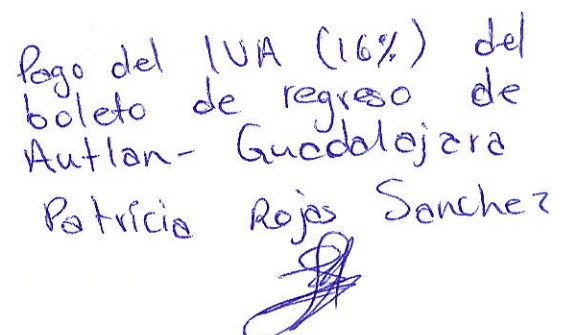 Pago del IVA (16%) del
boleto de regreso de
Autlan- Guadalajara
Patricia Rojas Sanchez